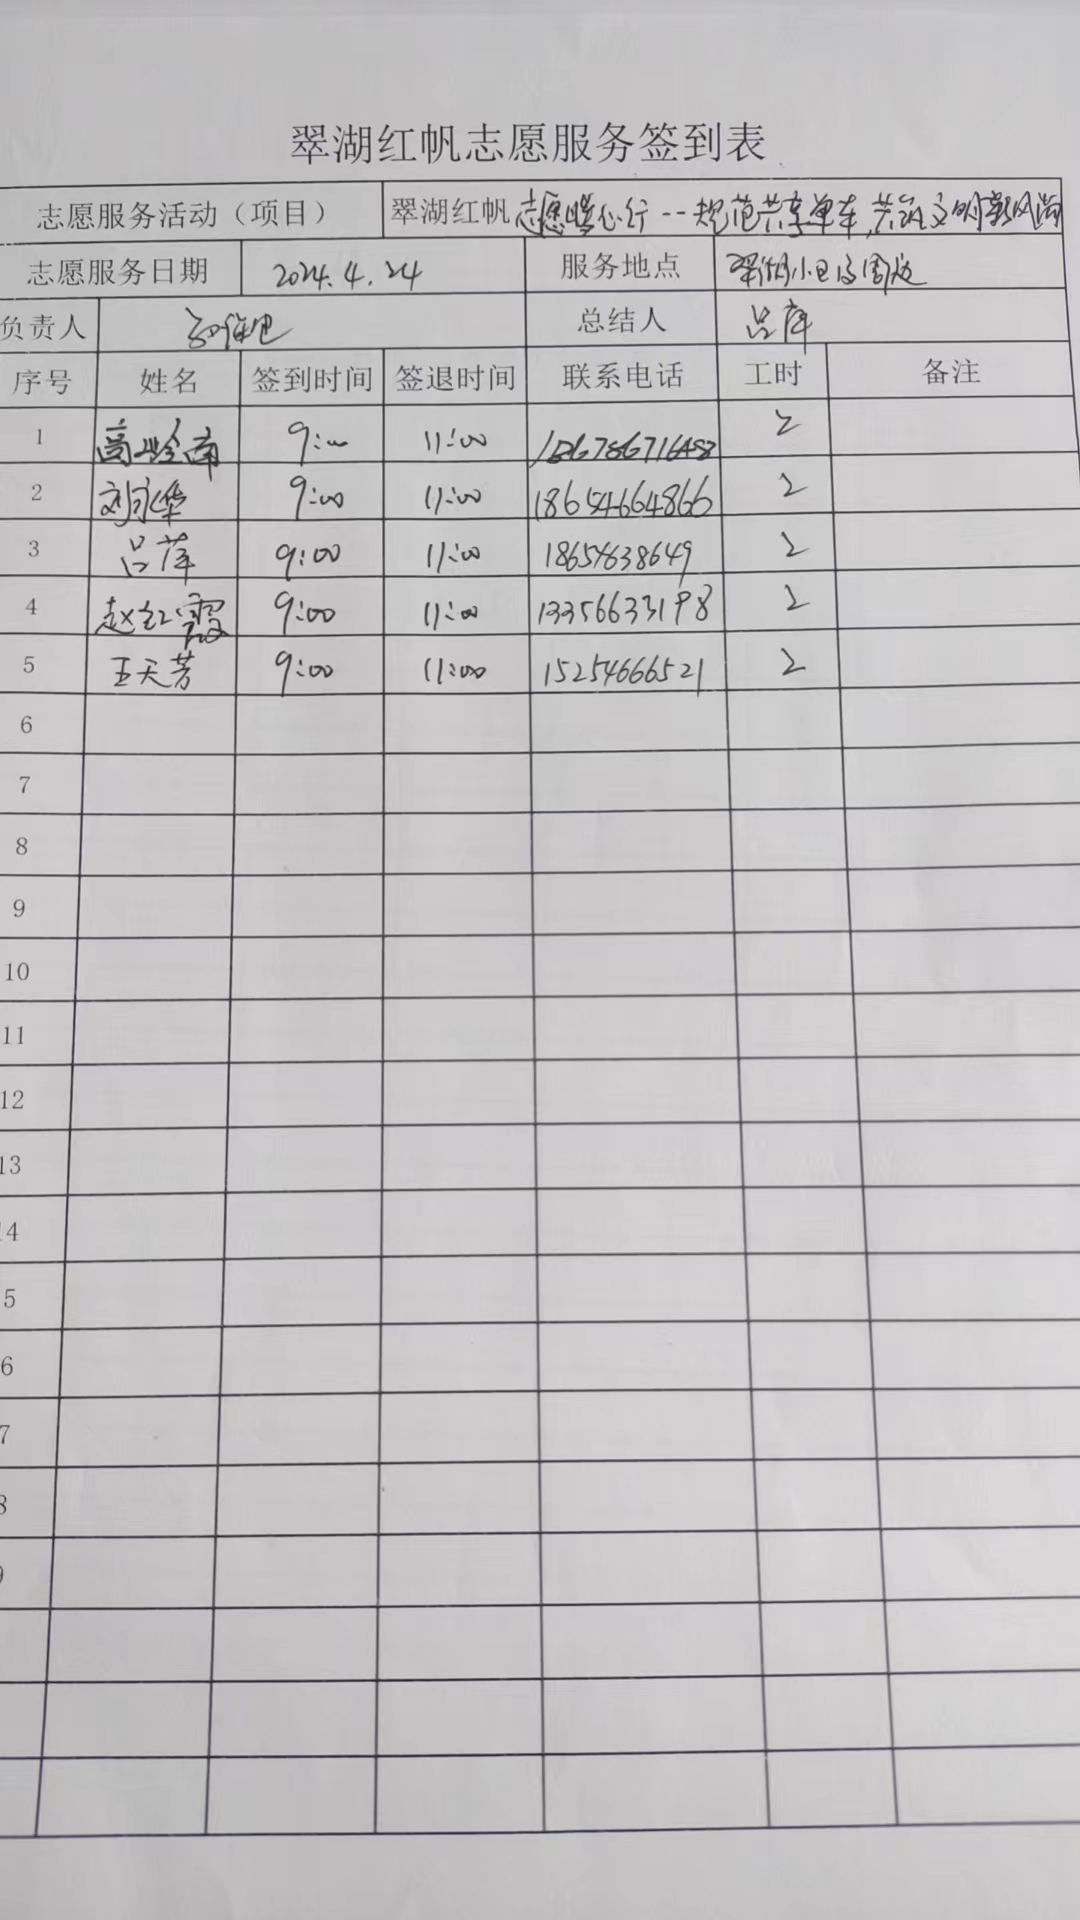 翠湖红帆志愿服务签到表
志愿服务活动（项目） 翠湖红帆志愿暖心行--规范共享单车,共筑文明新风尚
志愿服务日期 2024.4.24 服务地点 翠湖小区及周边
负责人 总结人 吕萍
序号 姓名 签到时间 签退时间 联系电话 工时 备注
1 高岭南 9:00 11:00 2
2 刘永华 9:00 11:00 18654664866 2
3 吕萍 9:00 11:00 18654638649 2
4 赵红霞 9:00 11:00 13356633198 2
5 王天芳 9:00 11:00 15254666521 2
6
7
8
9
10
11
12
13
14
5
6
7
8
9